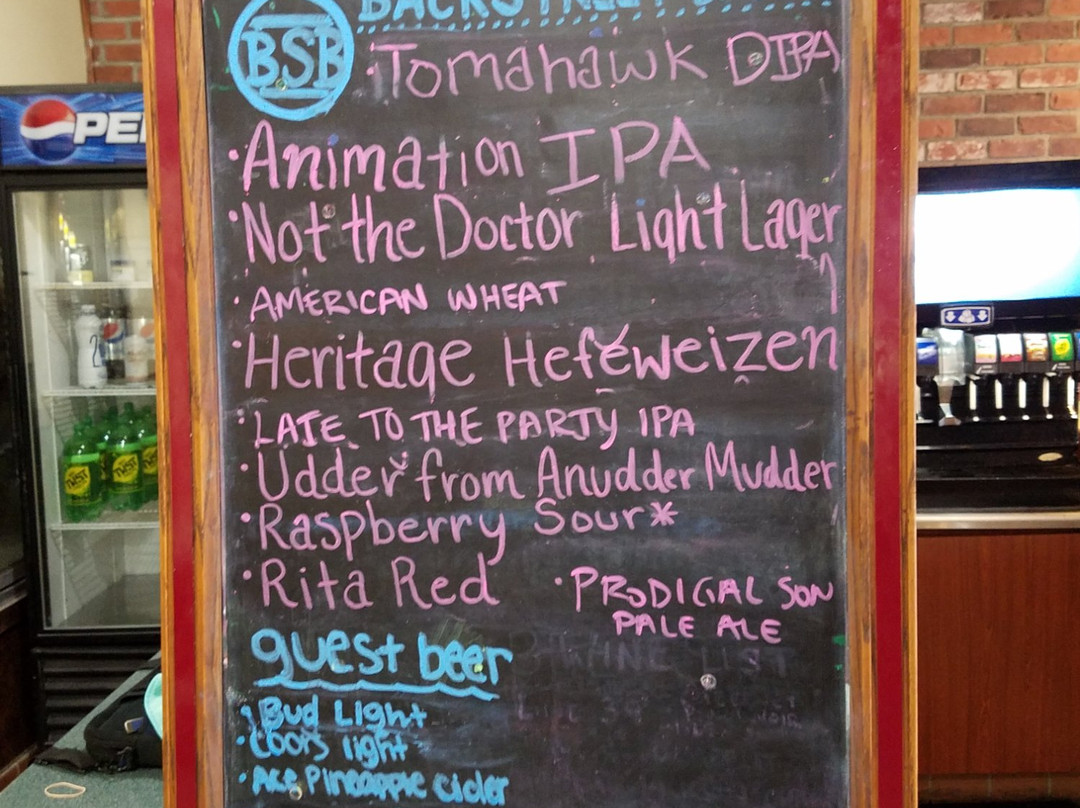 BACKSTREET
BSB
·Tomahawk DIPA
·Animation IPA
·Not the Doctor Light Lager
·AMERICAN WHEAT
·Heritage Hefeweizen
·LATE TO THE PARTY IPA
·Udder from Anudder Mudder
·Raspberry Sour*
·Rita Red
·PRODIGAL SON
PALE ALE
guest beer
·Bud Light
·Coors light
·Ace Pineapple Cider
PE